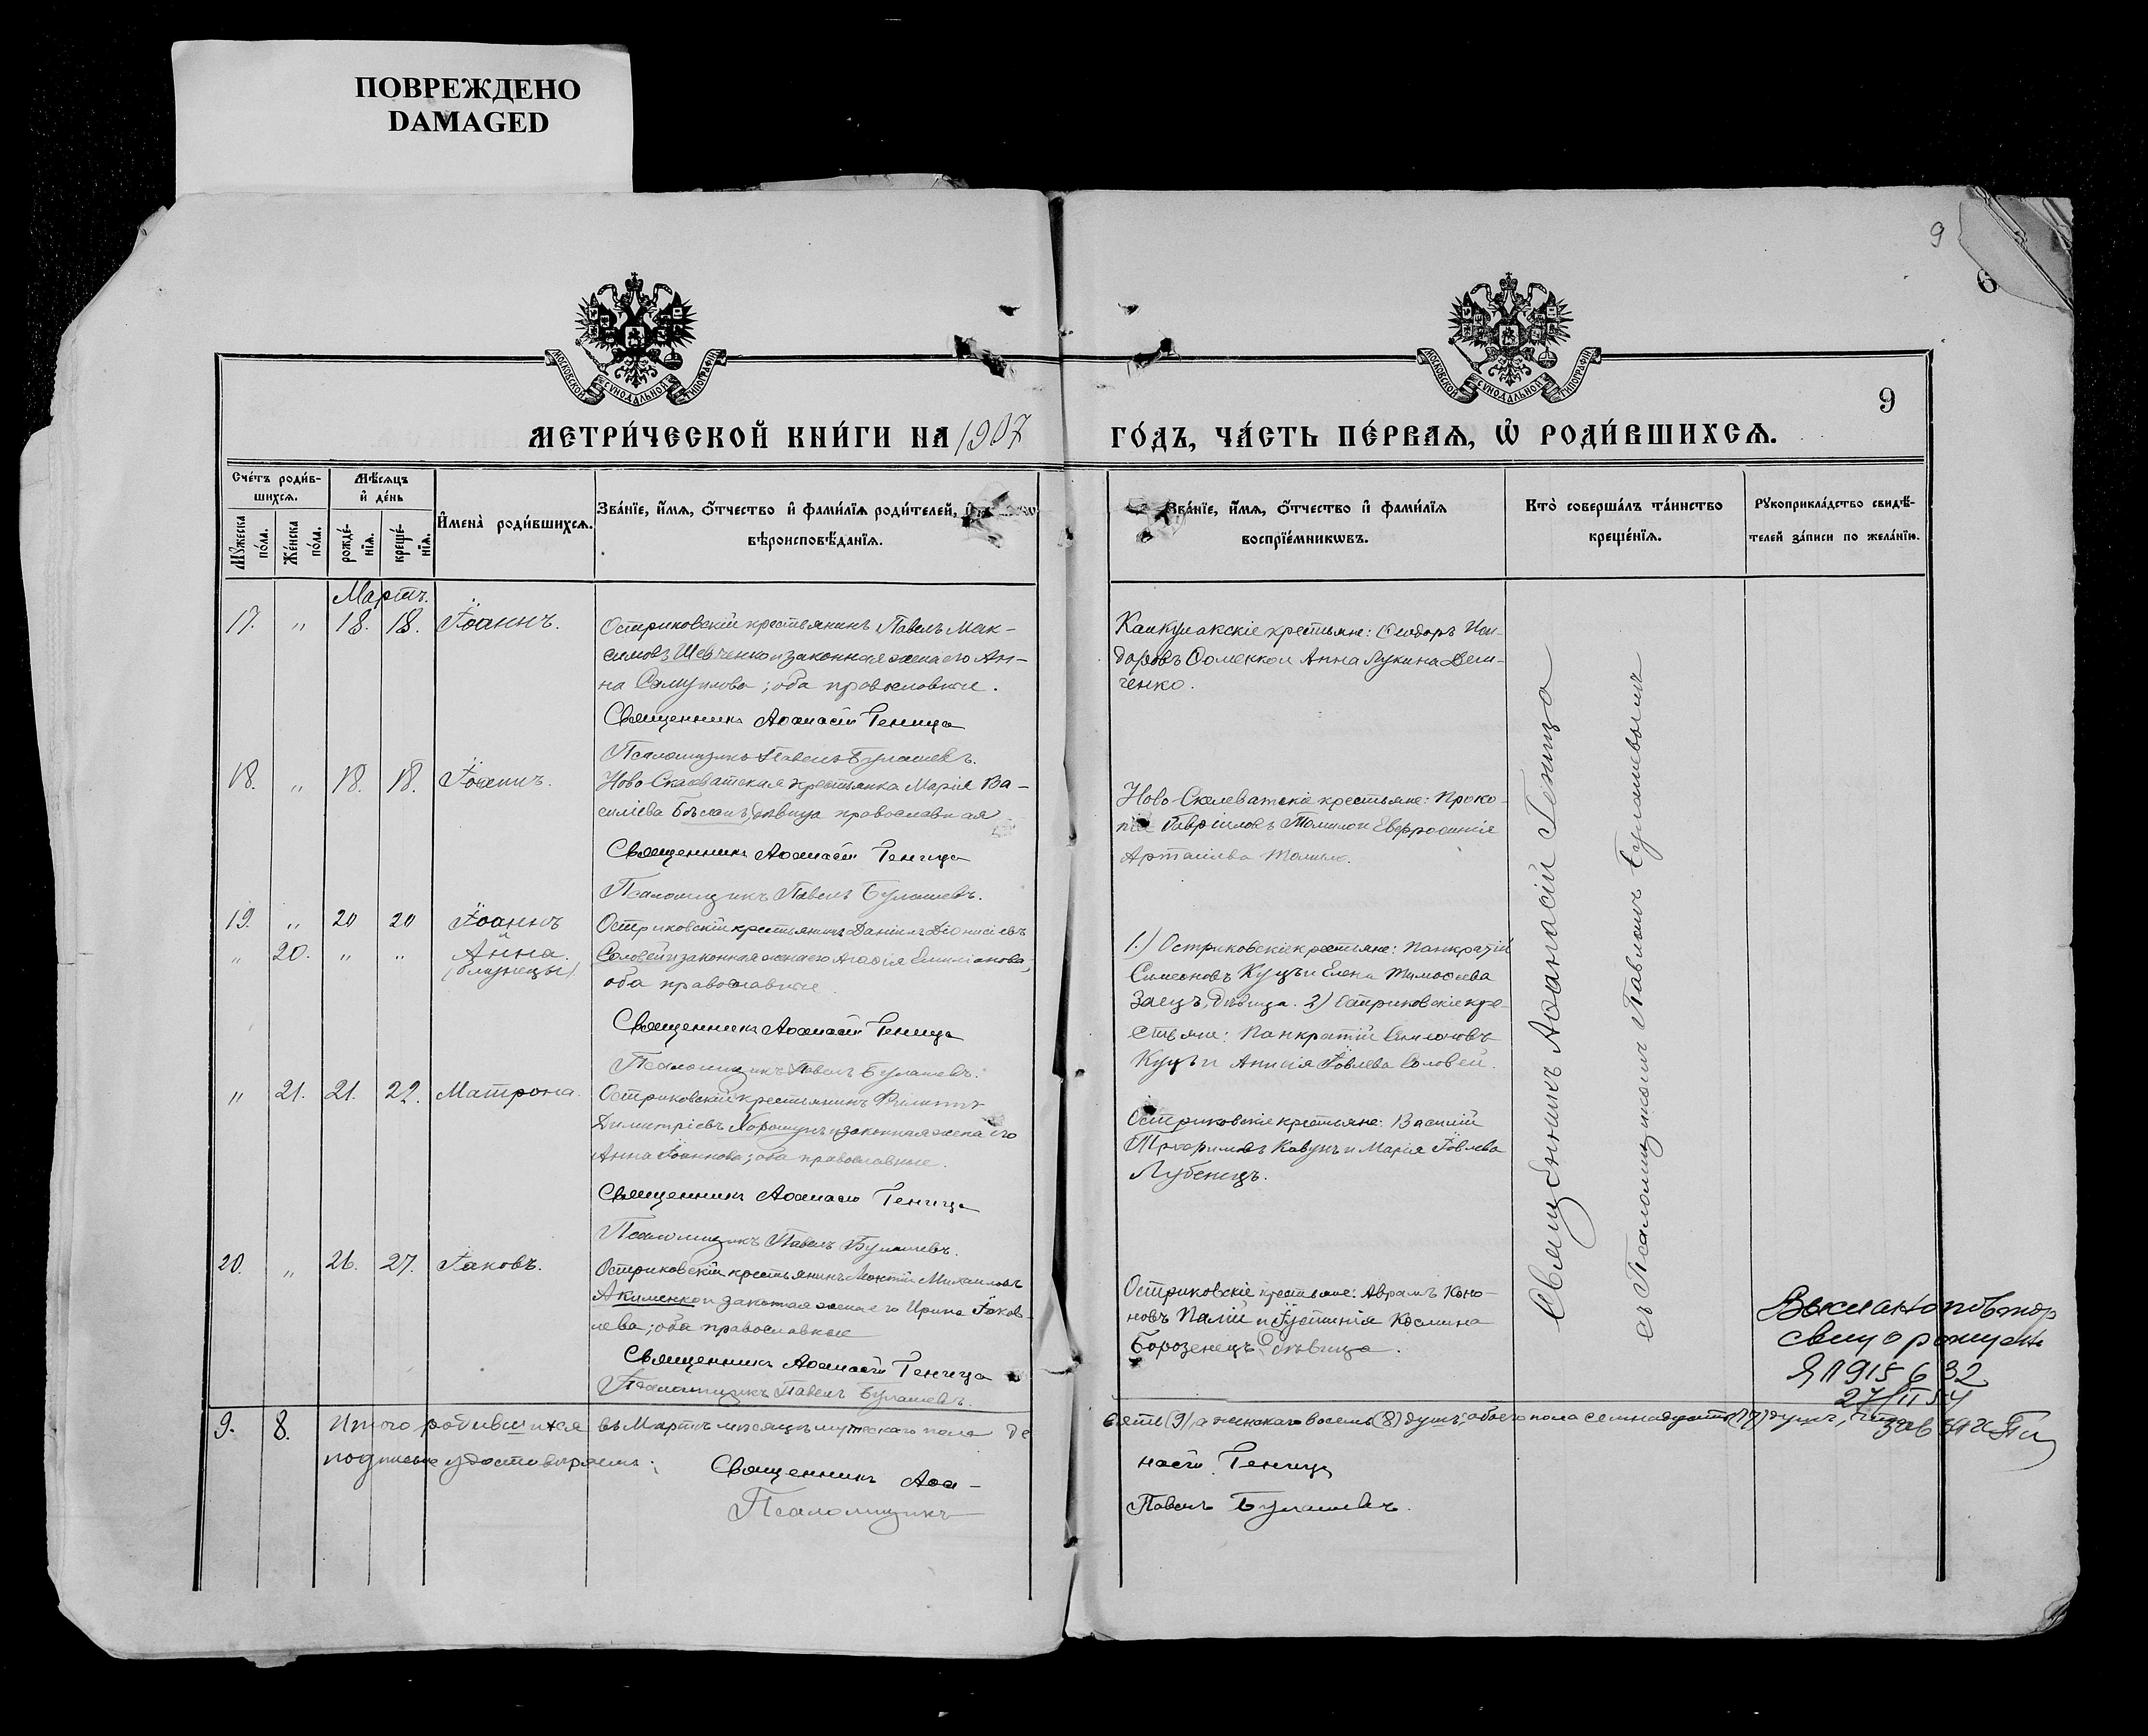 ПОВРЕЖДЕНО
DAMAGED
9
6
МОСКОВСКОЙ СѴНОДАЛЬНОЙ ТИПОГРАФІИ
МОСКОВСКОЙ СѴНОДАЛЬНОЙ ТИПОГРАФІИ
9
МЕТРИ́ЧЕСКОЙ КНИ́ГИ НА 1907 ГО́ДЪ, ЧА́СТЬ ПЕ́РВАѦ, Ѡ҆ РОДИ́ВШИХСѦ.
Сче́тъ роди́в-
шихсѧ.
Мꙋжеска
по́ла.
Же́нска
по́ла.
Мѣ́сѧцъ
и҆ де́нь
рожде́-
нїѧ.
креще́-
нїѧ.
И҆мена̀ роди́вшихсѧ.
Зва́нїе, и҆́мѧ, ѻ҆́тчество и҆ фами́лїѧ роди́телей,
вѣроисповѣ́данїѧ.
Зва́нїе, и҆́мѧ, ѻ҆́тчество и҆ фами́лїѧ
воспрїе́мникѡвъ.
Кто̀ соверша́лъ та́инство
креще́нїѧ.
Рꙋкоприкла́дство свидѣ́-
телей за́писи по жела́нїю.
Мартъ.
17. " 18. 18. Іоаннъ.
Остриковскій крестьянинъ Павелъ Мак-
симовъ Шевченко и законная жена его Ан-
на Самуилова; оба православные.
Священникъ Аѳанасій Геница
Псаломщикъ Павелъ Булашевъ.
Каикулакскіе крестьяне: Ѳеодоръ Иси-
доровъ Ѳоменко и Анна Лукина Дем-
ченко.
18. " 18. 18. Іоаннъ.
Ново-Скелеватская крестьянка Марія Ва-
силіева дѣвица православная
Священникъ Аѳанасій Геница
Псаломщикъ Павелъ Булашевъ.
Ново-Скелеватскіе крестьяне: Проко-
пій Гавріиловъ и Евфросинія
19. " 20 20 Іоаннъ
" 20. " " Анна.
(близнецы)
Остриковскій крестьянинъ Даніилъ Діонисіевъ
Соловей и законная жена его Агафія Емиліанова,
оба православные.
Священникъ Аѳанасій Геница
Псаломщикъ Павелъ Булашевъ.
1.) Остриковскіе крестьяне: Панкратій
Симеоновъ Куцъ и Елена Тимоѳеева
Заецъ, дѣвица. 2) Остриковскіе кре-
стьяне: Панкратій Симеоновъ
Куцъ и Анисія Іовлева Соловей.
" 21. 21. 22. Матрона.
Остриковскій крестьянинъ Филиппъ
Димитріевъ Хорошунъ и законная жена его
Анна Іоаннова; оба православные.
Священникъ Аѳанасій Геница
Псаломщикъ Павелъ Булашевъ.
Остриковскіе крестьяне: Василій
Трофимовъ Кавунъ и Марія Іовлева
Лубенецъ.
20. " 26. 27. Іаковъ.
Остриковскій крестьянинъ Леонтій Михаиловъ
Акименко и законная жена его Ирина Іаков-
лева; оба православные
Священникъ Аѳанасій Геница
Псаломщикъ Павелъ Булашевъ.
Остриковскіе крестьяне: Аврамъ Коно-
новъ Палій и Іустинія Космина
Борозенецъ, дѣвица.
Священникъ Аѳанасій Геница
съ Псаломщикомъ Павломъ Булашевымъ
27/II 54
9. 8. Итого родившихся въ Мартѣ мѣсяцѣ мужескаго пола де
вять (9), а женскаго восемь (8) душъ; обоего пола семнадцать (17) душъ,
подписью удостовѣряемъ: Священникъ Аѳа-
насій Геница
Псаломщикъ
Павелъ Булашевъ.